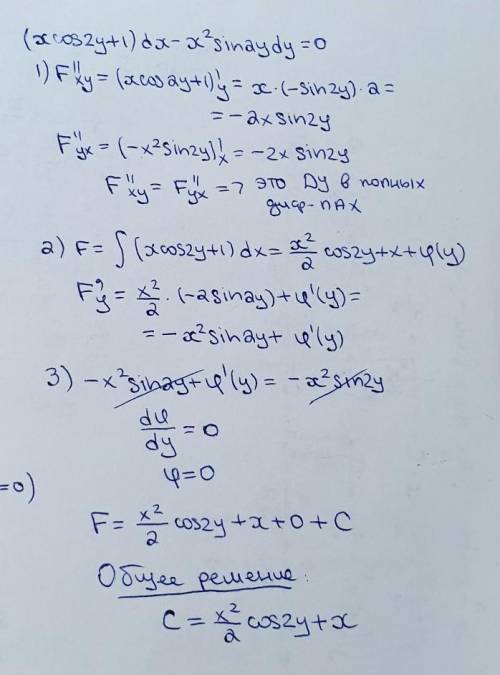 (xcos2y+1)dx-x²sin2ydy=0
1) F''xy=(xcos2y+1)'y=x·(-sin2y)·2=
=-2xsin2y
F''yx=(-x²sin2y)'x=-2xsin2y
F''xy=F''yx=> это DУ в полных
диф-лах
2) F=∫(xcos2y+1)dx=x²/2 cos2y+x+φ(y)
F'y=x²/2·(-2sin2y)+φ'(y)=
=-x²sin2y+φ'(y)
3) -x²sin2y+φ'(y)=-x²sin2y
dφ/dy=0
φ=0
=0)
F=x²/2 cos2y+x+0+C
Общее решение:
C=x²/2 cos2y+x